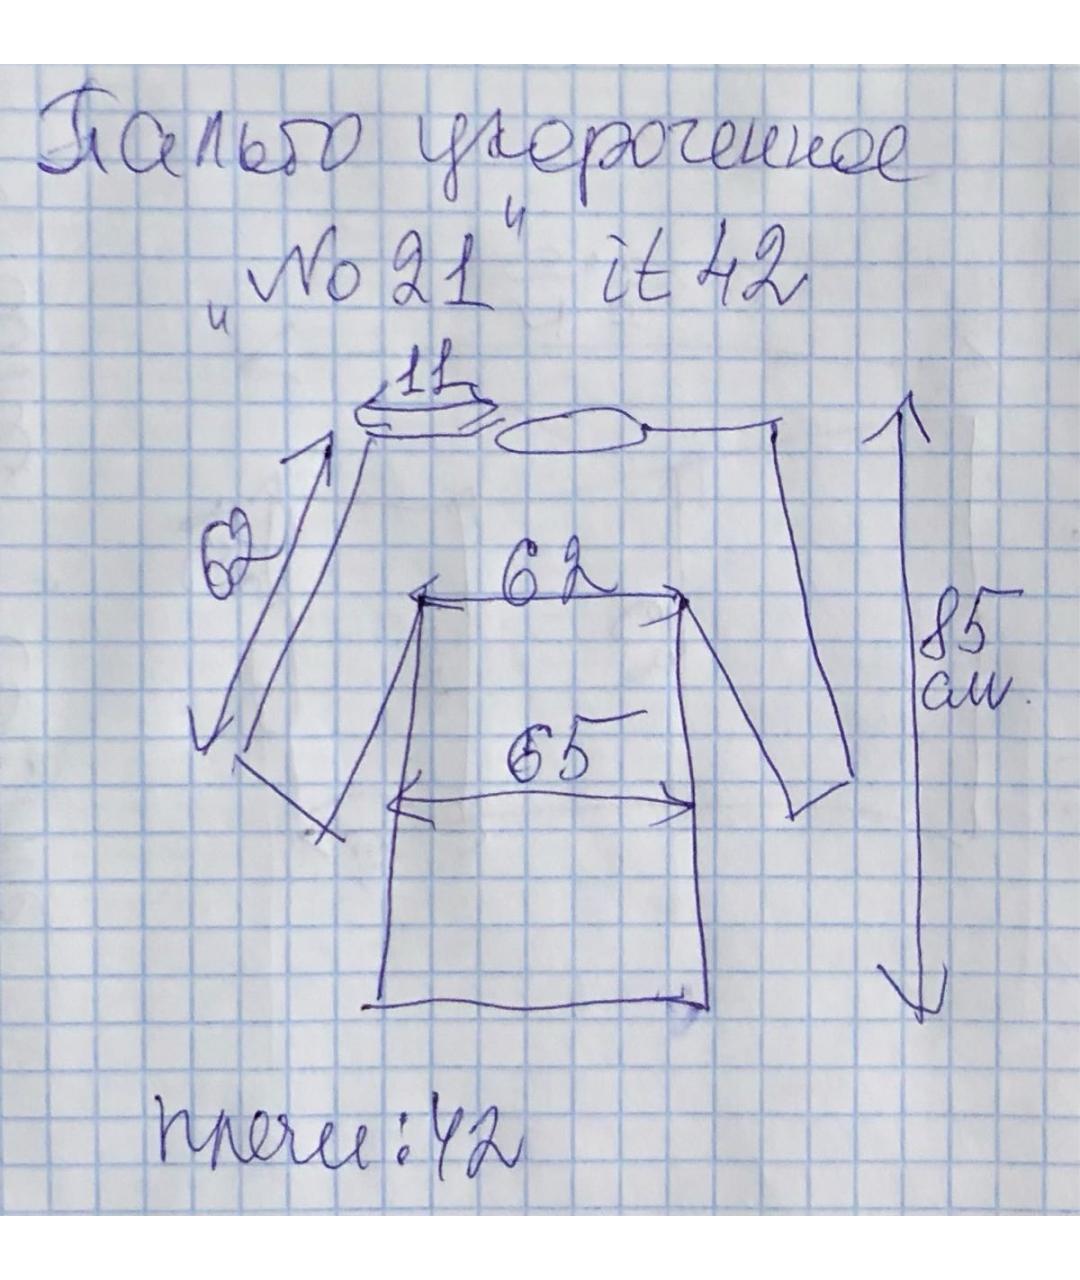 Пальто укороченное
"No 21" it 42
11
62
62
85
см.
65
плечи: 42